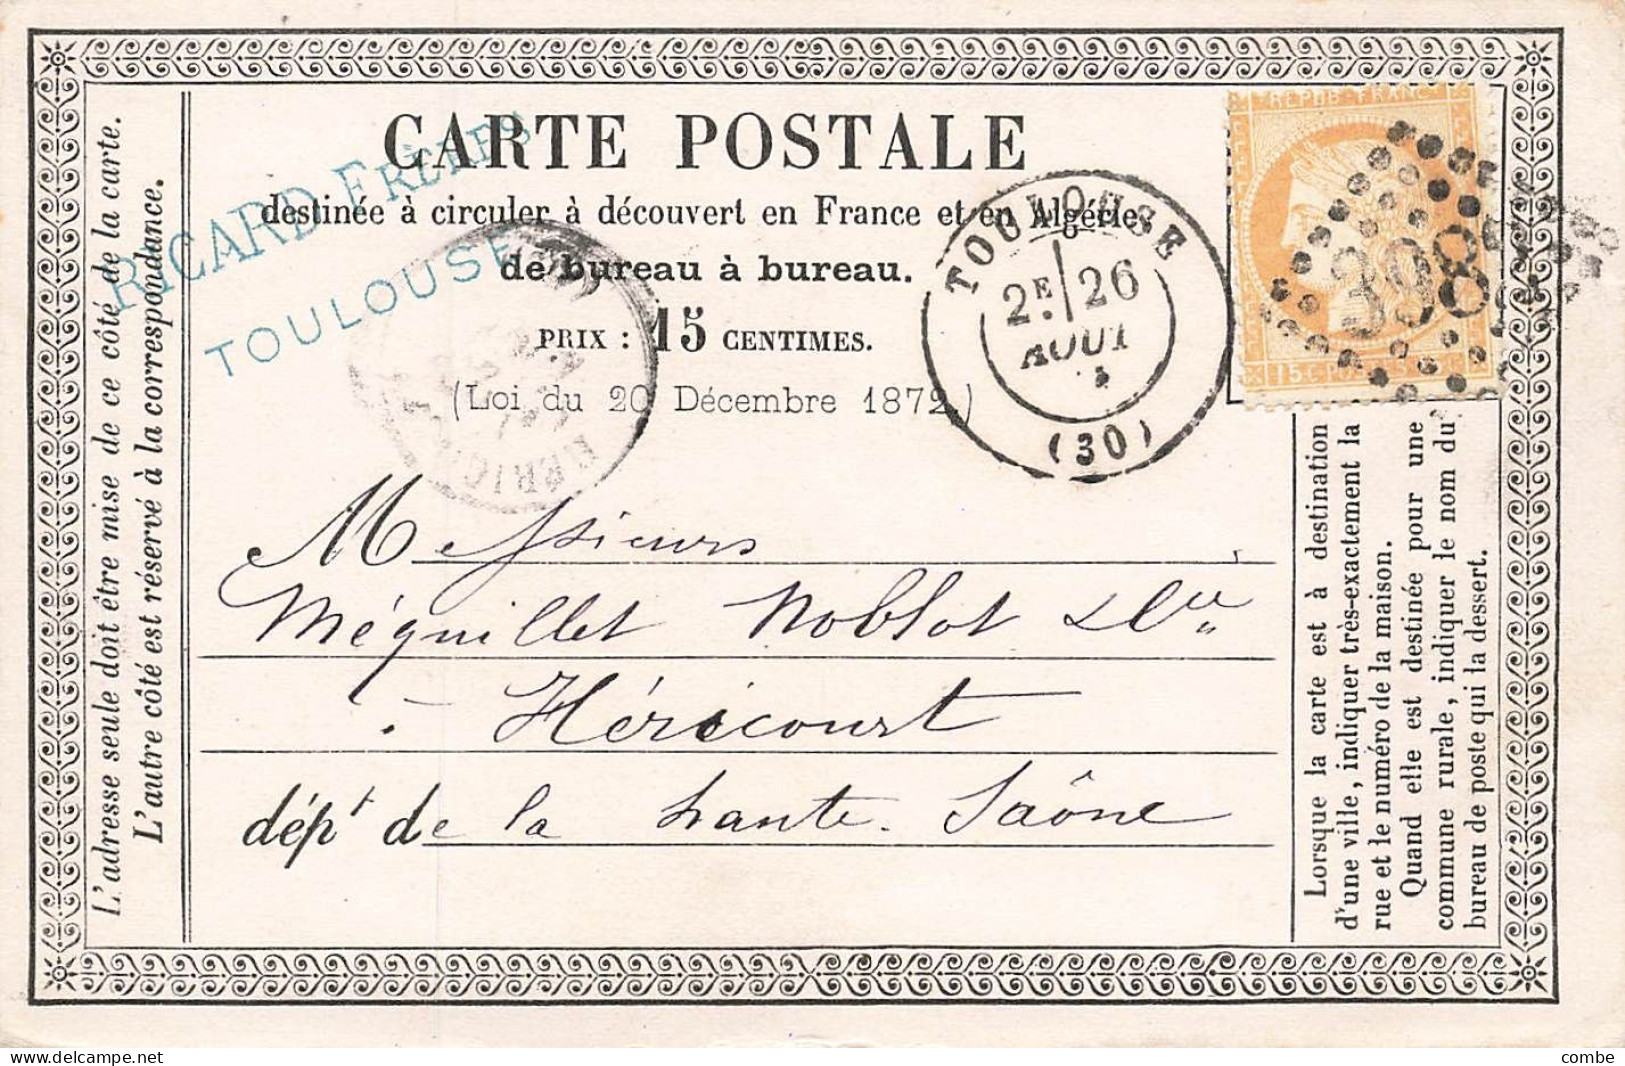 CARTE POSTALE
destinée à circuler à découvert en France et en Algérie
de bureau à bureau.
PRIX : 15 CENTIMES.
(Loi du 20 Décembre 1872)
RICARD FRÈRES
TOULOUSE
TOULOUSE
2E 26
AOUT
(30)
REPUB. FRANC.
15 C. POSTES
L'adresse seule doit être mise de ce côté de la carte.
L'autre côté est réservé à la correspondance.
Messieurs
Méquillet Noblot & Cie
à Héricourt
dépt de la haute Saône
Lorsque la carte est à destination
d'une ville, indiquer très-exactement la
rue et le numéro de la maison.
Quand elle est destinée pour une
commune rurale, indiquer le nom du
bureau de poste qui la dessert.
delcampe.net
combe